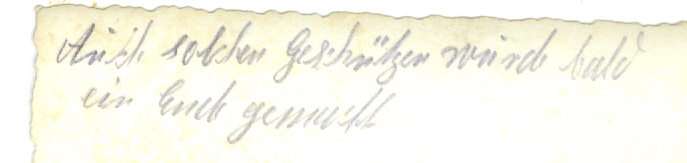 Auch solchen Geschützen wurde bald
ein Ende gemacht